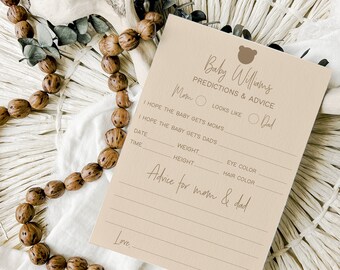 Baby Williams
PREDICTIONS & ADVICE
Mom LOOKS LIKE Dad
I HOPE THE BABY GETS MOM'S
I HOPE THE BABY GETS DAD'S
DATE WEIGHT EYE COLOR
TIME HEIGHT HAIR COLOR
Advice for mom & dad
Love,